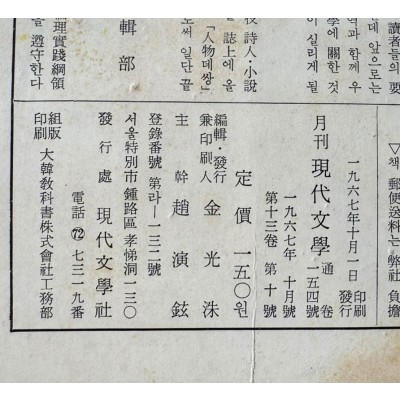 讀者들의 要
데 앞으로는
역과 함께 우
學에 關한 것
이 실리게 될
校 詩人·小說
誌上에 올
「人物데쌍」
로써 일단 끝
輯部
理實踐綱領
을 遵守한다
▽책 郵便送料는 弊社 負擔
一九六七年十月一日 印刷 發行
月刊 現代文學 通卷 一五四號
一九六七年 十月號
第十三卷 第十號
定價 一五〇원
編輯·發行 兼印刷人 金光洙
主幹 趙演鉉
登錄番號 第라—一三二號
서울特別市 鍾路區 孝悌洞 一三〇
發行處 現代文學社
電話 ⑫ 七三一九番
組版 印刷 大韓敎科書株式會社工務部